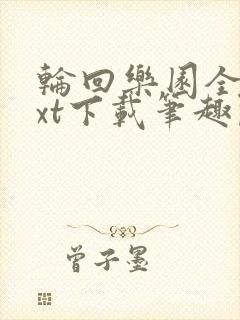 輪回樂園全
xt下載筆趣
曾子墨